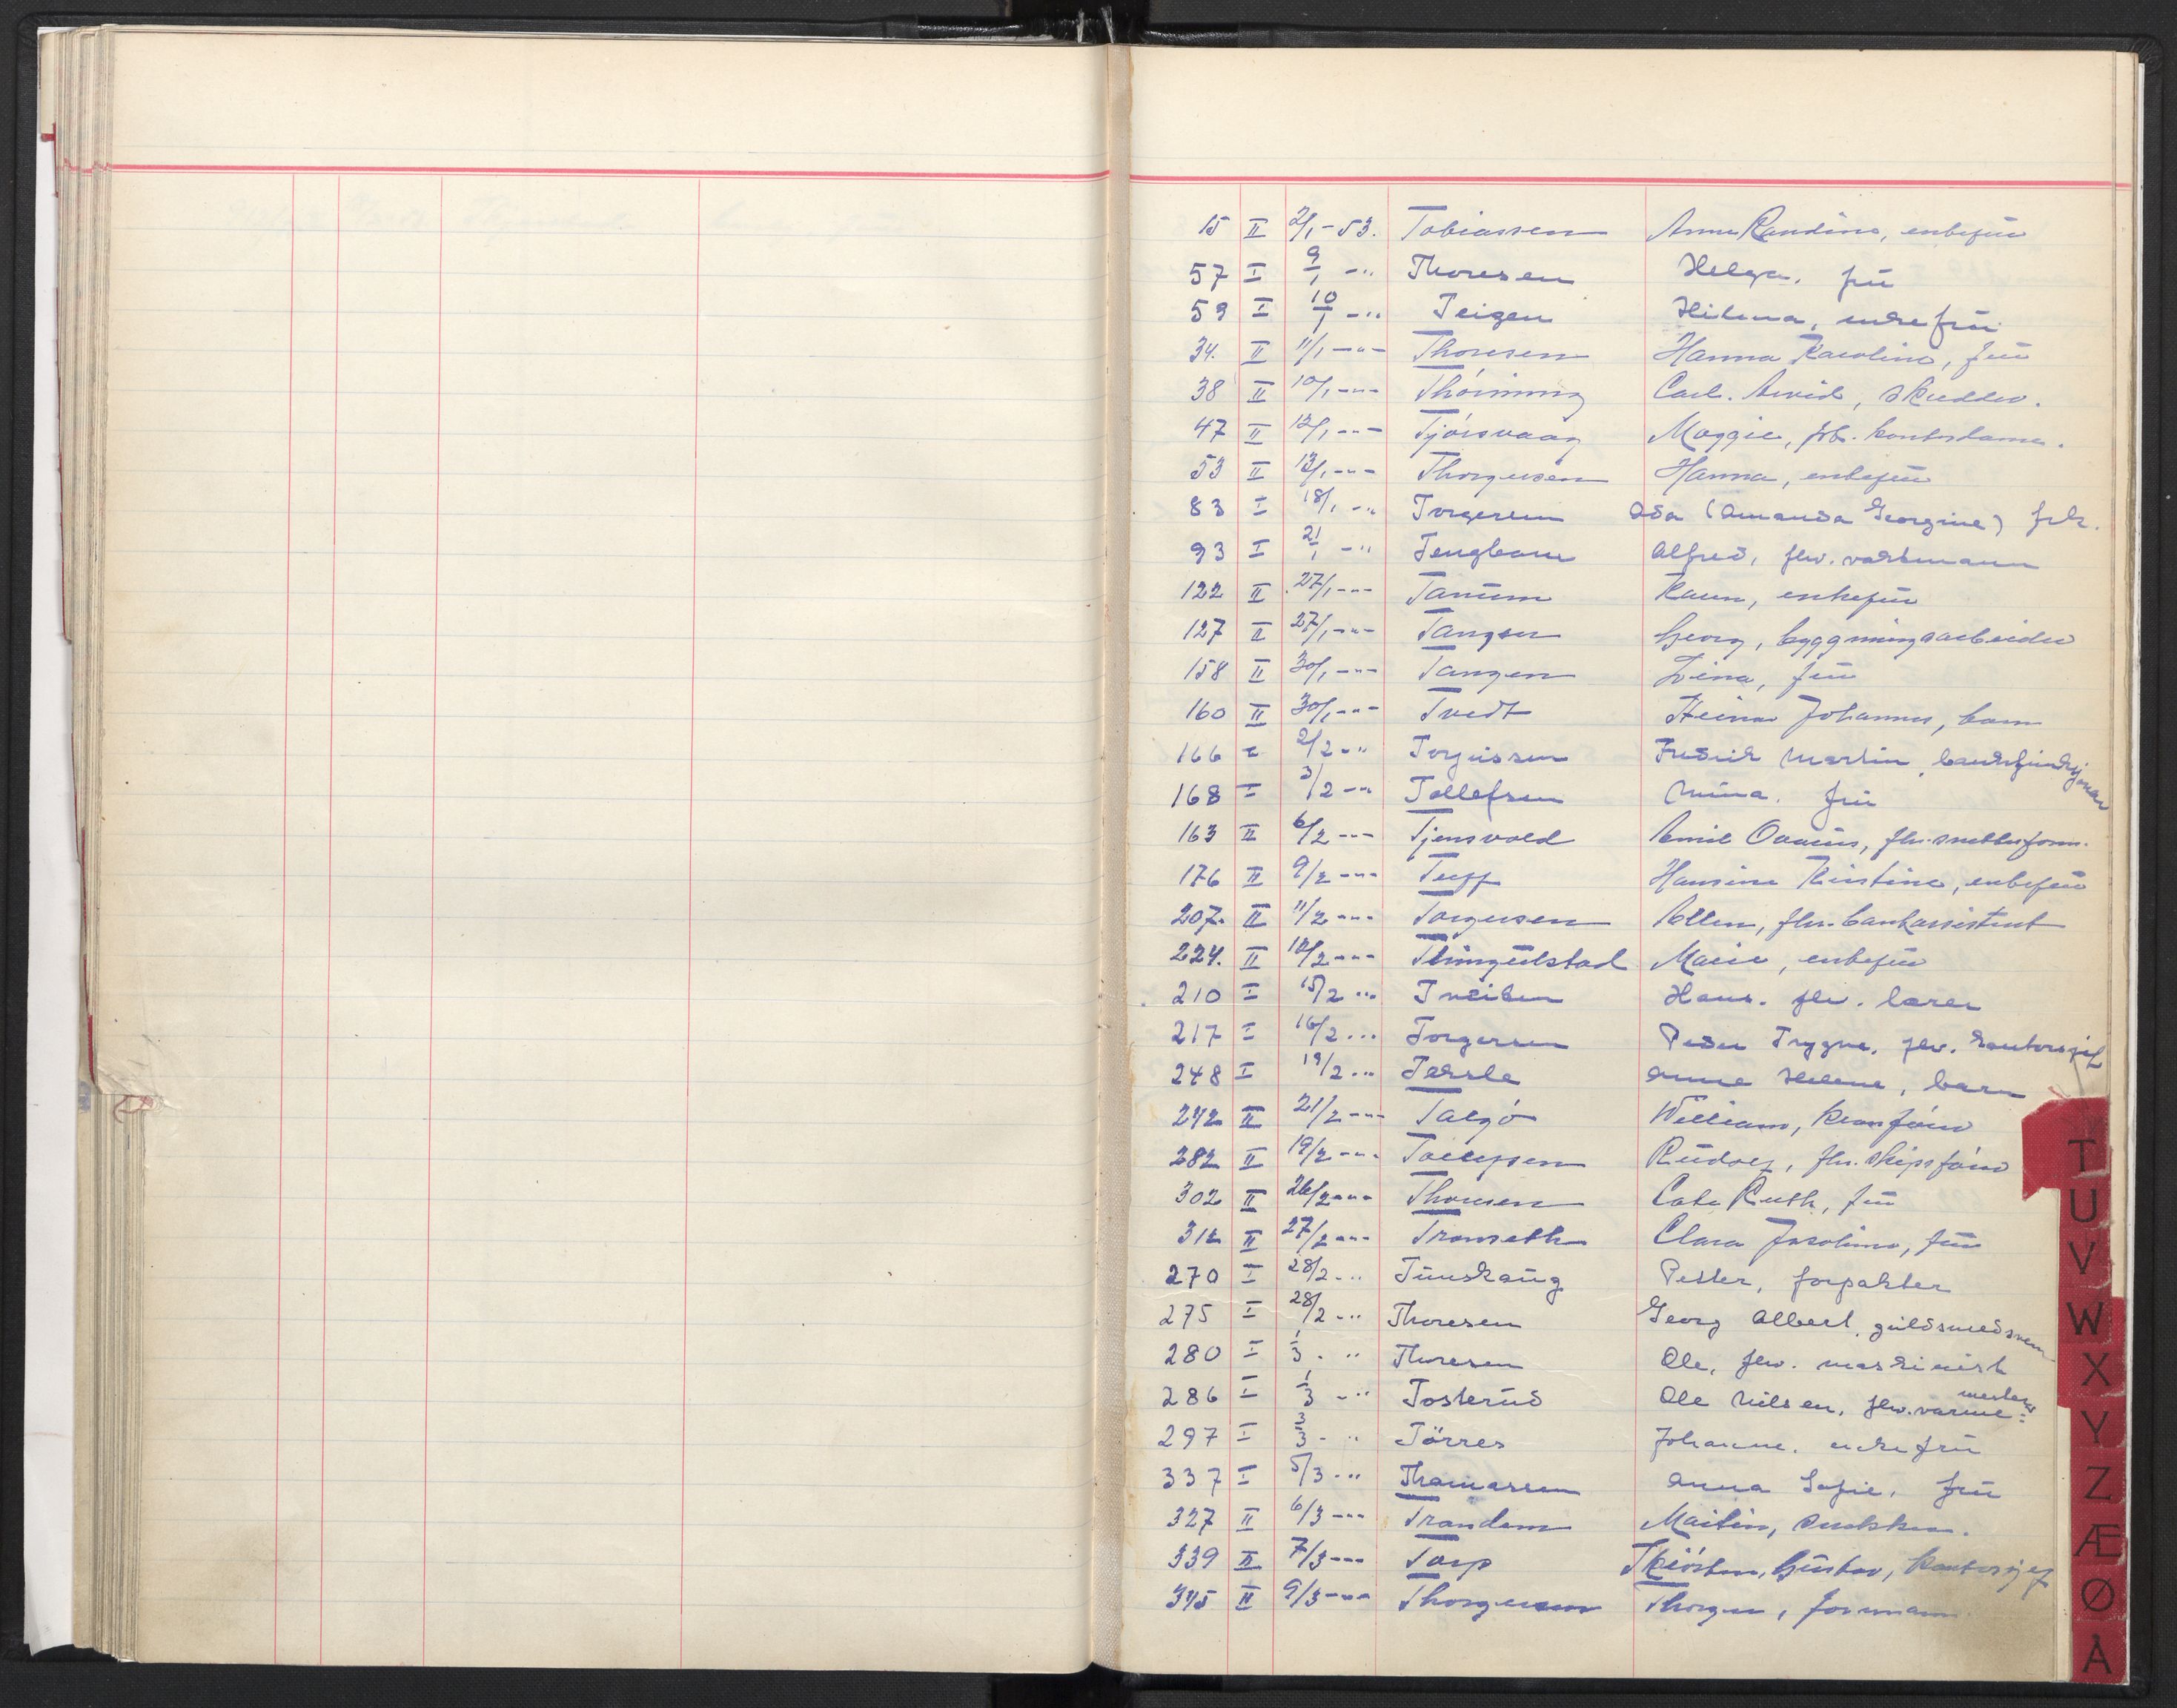 15 II 2/1-53. Tobiassen Anna Randine, enkefrü
57 I 9/1 -" Thoresen Helga, frü
59 I 10/1 -" Teigen Hilma, enkefrü
34. II 11/1 -"- Thoresen Hanna Karoline, frü
38 II 10/1 -"- Thörning Carl. Arvid, skredder.
47 II 12/1 -"- Tjörsvaag Maggie, frk. kontordame.
53 II 13/1 -"- Thorgersen Hanna, enkefrü
83 I 18/1 -" Torgersen Ada (Amanda Georgine) frk.
93 I 21/1 -" Tengbom Alfred, fhv. vaktmann
122 II 27/1 -"- Tanüm Karen, enkefrü
127 II 27/1 -"- Tangen Georg, byggningsarbeider
158 II 30/1 -"- Tangen Lina, frü
160 II 30/1 -"- Tvedt Steinar Johannes, barn
166 I 2/2 -" Torjüssen Fredrik Martin, bankfunksjonær
168 I 3/2 -" Tollefsen Mina. frü
163 II 6/2 -"- Tjensvold Emil
176 II 9/2 -"- Hansine Kristine, enkefrü
207. II 11/2 -"- Torgersen Ellen, fhv. bankassistent
224. II 14/2 -"- Thingülstad Marie, enkefrü
210 I 15/2 -" Tveiten Hans. fhv. lærer
217 I 16/2 -" Torgersen Peder Trygve, fhv. kontorsjef
248 I 19/2 -" Terkle Anne Helene, barn
242 II 21/2 -"- Talgö William, kranförer
282 II 19/2 -"- Rüdolf, fhv. skipsförer
302 II 26/2 -"- Thomsen Cato Ruth, frü
312 II 27/2 -"- Tromseth Clara Josefine, frü
270 I 28/2 -" Tünskaüg Petter, forpakter
275 I 28/2 -" Thoresen Georg Albert, güldsmedsvenn
280 I 1/3 -" Thoresen Ole, fhv. maskinist
286 I 1/3 -" Tosterüd Ole Nilsen, fhv. varme-mester
297 I 3/3 -" Törres Johanne. enkefrü
337 I 5/3 -" Thomassen Anna Sofie, frü
327 II 6/3 -"- Trandem Martin,
339 II 7/3 -"- Torp Güstav, kontorsjef
345 II 9/3 -"- Thorgersen Thorger, formann
T
U
V
W
X
Y
Z
Æ
Ø
Å